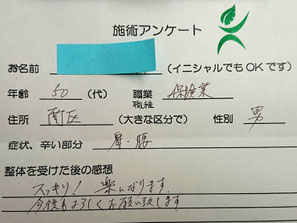 施術アンケート
お名前 (イニシャルでもOKです)
年齢 50 (代) 職業 保険業
職種
住所 南区 (大きな区分で) 性別 男
症状、辛い部分 肩・腰
整体を受けた後の感想
スッキリ! 楽になります。
今後もよろしくお願い致します